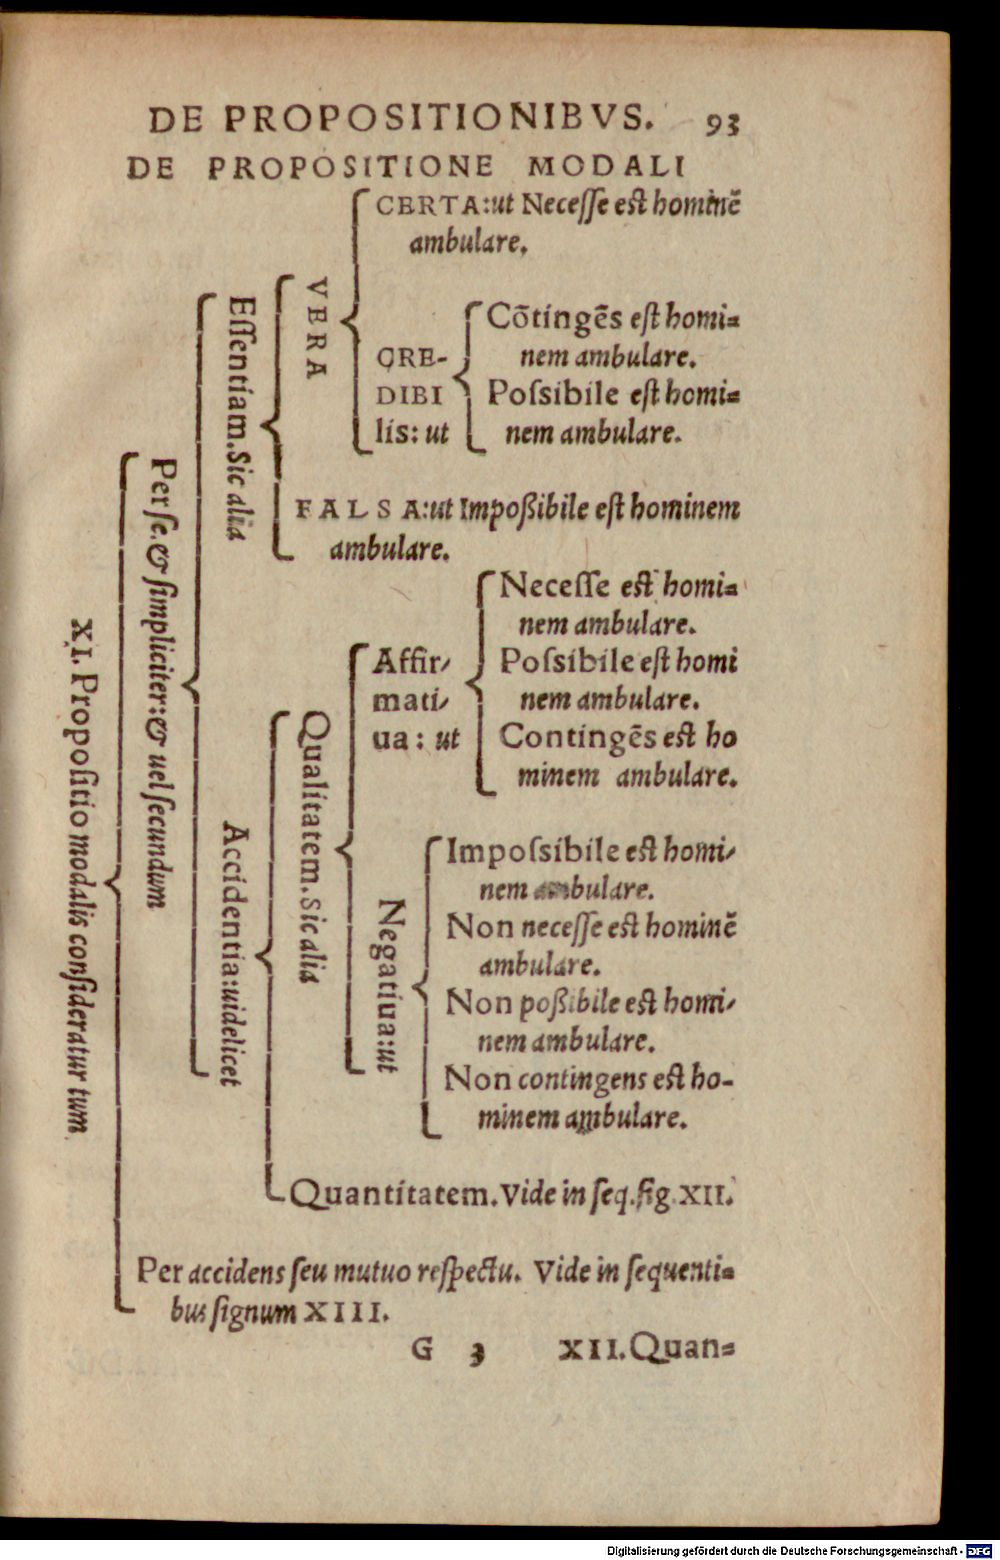 DE PROPOSITIONIBVS. 93
DE PROPOSITIONE MODALI
XI. Propoſitio modalis conſideratur tum
Per ſe. & ſimpliciter: & uel ſecundum
Eſſentiam. Sic alia
VERA
CERTA: ut Neceſſe est hominē
ambulare.
CRE-
DIBI
lis: ut
Cōtingēs eſt homi=
nem ambulare.
Poſsibile eſt homi=
nem ambulare.
FALSA: ut Impoßibile eſt hominem
ambulare.
Accidentia: uidelicet
Qualitatem. Sic alia
Affir/
mati/
ua: ut
Neceſſe est homi=
nem ambulare.
Poſsibile eſt homi
nem ambulare.
Contingēs est ho
minem ambulare.
Negatiua: ut
Impoſsibile est homi/
nem ambulare.
Non neceſſe est hominē
ambulare.
Non poßibile est homi/
nem ambulare.
Non contingens est ho-
minem ambulare.
Quantitatem. Vide in ſeq. fig. XII.
Per accidens ſeu mutuo reſpectu. Vide in ſequenti=
bus ſignum XIII.
G 3 XII. Quan=
Digitalisierung gefördert durch die Deutsche Forschungsgemeinschaft - DFG